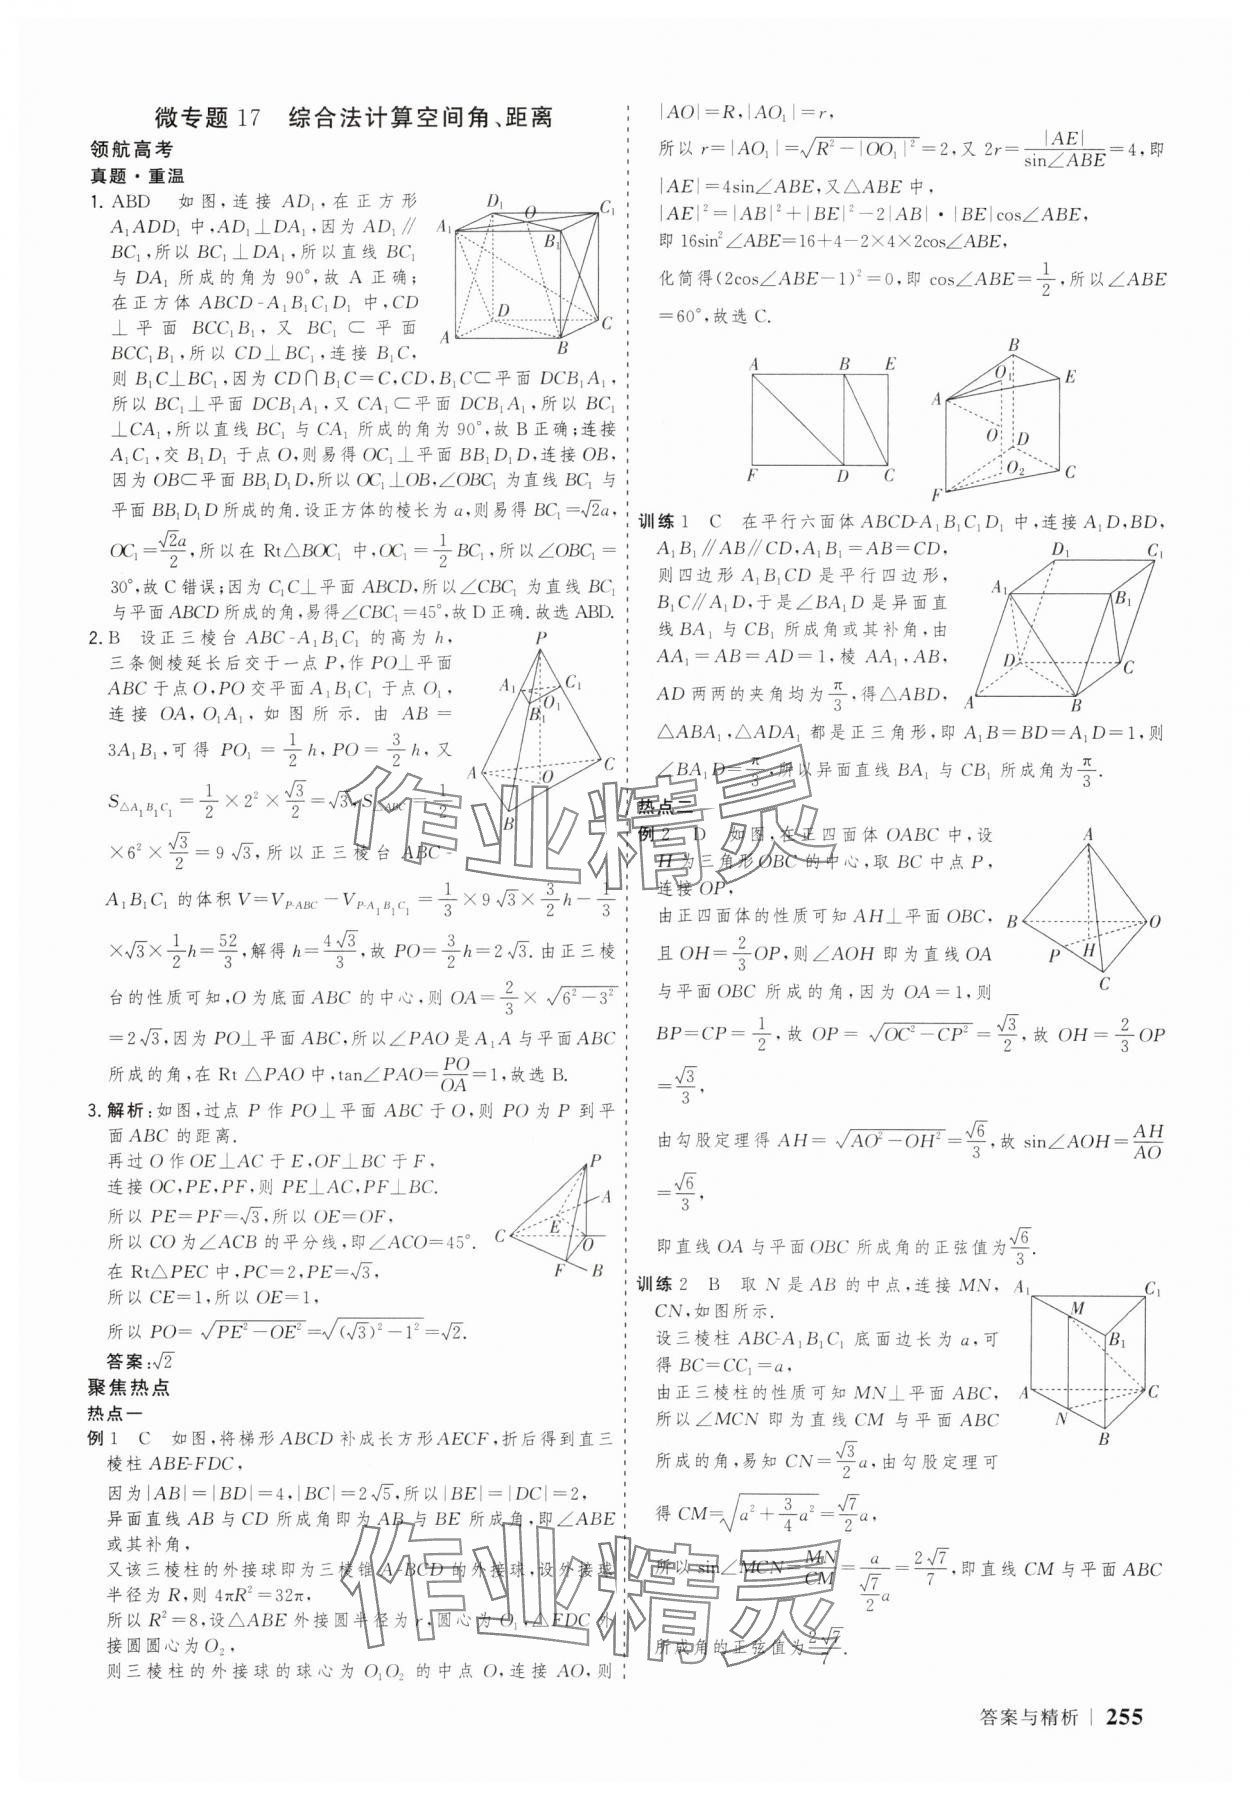 微专题 17　综合法计算空间角、距离
领航高考
真题·重温
1. ABD　如图,连接 AD₁,在正方形
A₁ADD₁ 中,AD₁⊥DA₁,因为 AD₁∥
BC₁,所以 BC₁⊥DA₁,所以直线 BC₁
与 DA₁ 所成的角为 90°,故 A 正确;
在正方体 ABCD-A₁B₁C₁D₁ 中,CD
⊥平面 BCC₁B₁,又 BC₁⊂平面
BCC₁B₁,所以 CD⊥BC₁,连接 B₁C,
则 B₁C⊥BC₁,因为 CD∩B₁C=C,CD,B₁C⊂平面 DCB₁A₁,
所以 BC₁⊥平面 DCB₁A₁,又 CA₁⊂平面 DCB₁A₁,所以 BC₁
⊥CA₁,所以直线 BC₁ 与 CA₁ 所成的角为90°,故B正确;连接
A₁C₁,交 B₁D₁ 于点O,则易得 OC₁⊥平面 BB₁D₁D,连接 OB,
因为 OB⊂平面 BB₁D₁D,所以 OC₁⊥OB,∠OBC₁ 为直线 BC₁ 与
平面 BB₁D₁D 所成的角.设正方体的棱长为 a,则易得 BC₁=√2a,
OC₁=√2a/2,所以在 Rt△BOC₁ 中,OC₁=1/2BC₁,所以∠OBC₁=
30°,故 C 错误;因为 C₁C⊥平面 ABCD,所以∠CBC₁ 为直线 BC₁
与平面 ABCD 所成的角,易得∠CBC₁=45°,故 D 正确.故选 ABD.
2. B　设正三棱台 ABC-A₁B₁C₁ 的高为 h,
三条侧棱延长后交于一点 P,作 PO⊥平面
ABC 于点 O,PO 交平面 A₁B₁C₁ 于点 O₁,
连接 OA,O₁A₁,如图所示.由 AB=
3A₁B₁,可得 PO₁=1/2h,PO=3/2h,又
S△A₁B₁C₁=1/2×2²×√3/2=√3,S△ABC=1/2
×6²×√3/2=9√3,所以正三棱台 ABC-
A₁B₁C₁ 的体积 V=V_P-ABC−V_P-A₁B₁C₁=1/3×9√3×3/2h−1/3
×√3×1/2h=52/3,解得 h=4√3/3,故 PO=3/2h=2√3.由正三棱
台的性质可知,O 为底面 ABC 的中心,则 OA=2/3×√(6²−3²)
=2√3,因为 PO⊥平面 ABC,所以∠PAO 是 A₁A 与平面 ABC
所成的角,在 Rt △PAO 中,tan∠PAO=PO/OA=1,故选 B.
3. 解析:如图,过点 P 作 PO⊥平面 ABC 于 O,则 PO 为 P 到平
面 ABC 的距离.
再过 O 作 OE⊥AC 于 E,OF⊥BC 于 F,
连接 OC,PE,PF,则 PE⊥AC,PF⊥BC.
所以 PE=PF=√3,所以 OE=OF,
所以 CO 为∠ACB 的平分线,即∠ACO=45°.
在 Rt△PEC 中,PC=2,PE=√3,
所以 CE=1,所以 OE=1,
所以 PO=√(PE²−OE²)=√((√3)²−1²)=√2.
答案:√2
聚焦热点
热点一
例 1　C　如图,将梯形 ABCD 补成长方形 AECF,折后得到直三
棱柱 ABE-FDC,
因为|AB|=|BD|=4,|BC|=2√5,所以|BE|=|DC|=2,
异面直线 AB 与 CD 所成角即为 AB 与 BE 所成角,即∠ABE
或其补角,
又该三棱柱的外接球即为三棱锥 A-BCD 的外接球,设外接球
半径为 R,则 4πR²=32π,
所以 R²=8,设△ABE 外接圆半径为 r,圆心为 O₁,△FDC 外
接圆圆心为 O₂,
则三棱柱的外接球的球心为 O₁O₂ 的中点 O,连接 AO,则
|AO|=R,|AO₁|=r,
所以 r=|AO₁|=√(R²−|OO₁|²)=2,又 2r=|AE|/sin∠ABE=4,即
|AE|=4sin∠ABE,又△ABE 中,
|AE|²=|AB|²+|BE|²−2|AB|·|BE|cos∠ABE,
即 16sin²∠ABE=16+4−2×4×2cos∠ABE,
化简得(2cos∠ABE−1)²=0,即 cos∠ABE=1/2,所以∠ABE
=60°,故选 C.
训练 1　C　在平行六面体 ABCD-A₁B₁C₁D₁ 中,连接 A₁D,BD,
A₁B₁∥AB∥CD,A₁B₁=AB=CD,
则四边形 A₁B₁CD 是平行四边形,
B₁C∥A₁D,于是∠BA₁D 是异面直
线 BA₁ 与 CB₁ 所成角或其补角,由
AA₁=AB=AD=1,棱 AA₁,AB,
AD 两两的夹角均为π/3,得△ABD,
△ABA₁,△ADA₁ 都是正三角形,即 A₁B=BD=A₁D=1,则
∠BA₁D=π/3,所以异面直线 BA₁ 与 CB₁ 所成角为π/3.
热点二
例 2　D　如图,在正四面体 OABC 中,设
H 为三角形 OBC 的中心,取 BC 中点 P,
连接 OP,
由正四面体的性质可知 AH⊥平面 OBC,
且 OH=2/3OP,则∠AOH 即为直线 OA
与平面 OBC 所成的角,因为 OA=1,则
BP=CP=1/2,故 OP=√(OC²−CP²)=√3/2,故 OH=2/3OP
=√3/3,
由勾股定理得 AH=√(AO²−OH²)=√6/3,故 sin∠AOH=AH/AO
=√6/3,
即直线 OA 与平面 OBC 所成角的正弦值为√6/3.
训练 2　B　取 N 是 AB 的中点,连接 MN,
CN,如图所示.
设三棱柱 ABC-A₁B₁C₁ 底面边长为 a,可
得 BC=CC₁=a,
由正三棱柱的性质可知 MN⊥平面 ABC,
所以∠MCN 即为直线 CM 与平面 ABC
所成的角,易知 CN=√3/2a,由勾股定理可
得 CM=√(a²+3/4a²)=√7/2a,
所以 sin∠MCN=MN/CM=a/(√7/2a)=2√7/7,即直线 CM 与平面 ABC
所成角的正弦值为2√7/7.
作业精灵
作业精灵
答案与精析 | 255